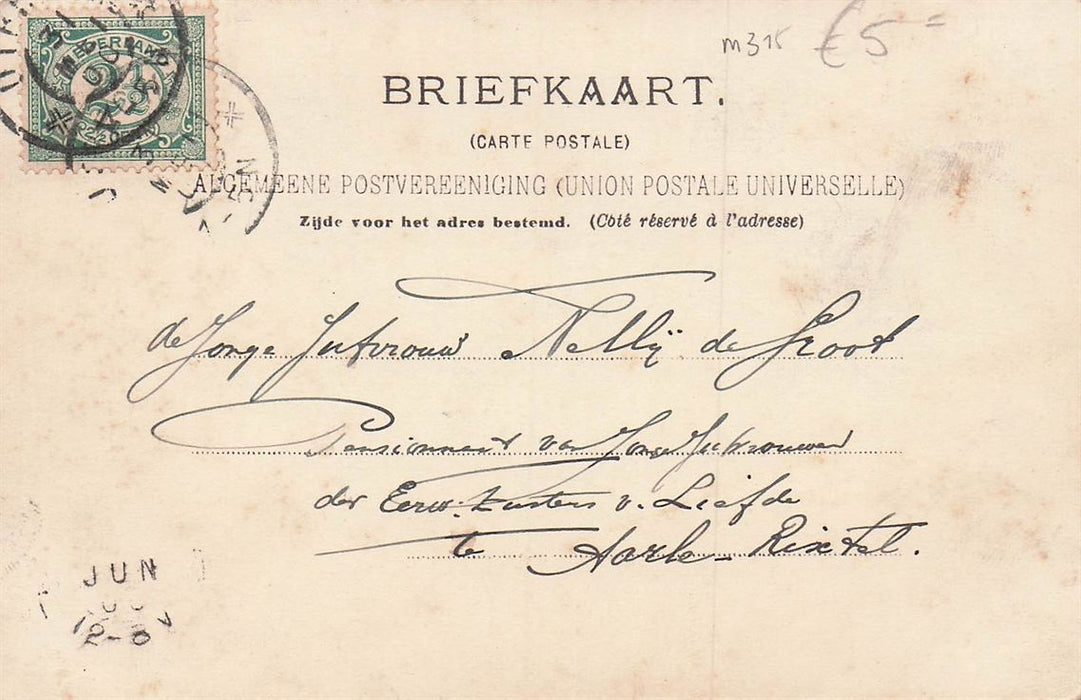 m315 €5=
NEDERLAND
2½
BRIEFKAART.
(CARTE POSTALE)
ALGEMEENE POSTVEREENIGING (UNION POSTALE UNIVERSELLE)
Zijde voor het adres bestemd. (Côté réservé à l'adresse)
de Jonge Jufvrouw Nellÿ de Groot
Pensionnaat van Jonge Jufvrouwen
der Eerw. Zusters v. Liefde
te Aarle-Rixtel.
JUN